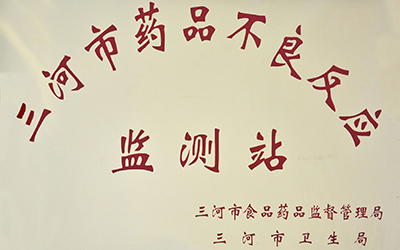 三河市药品不良反应
监测站
三河市食品药品监督管理局
三河市卫生局